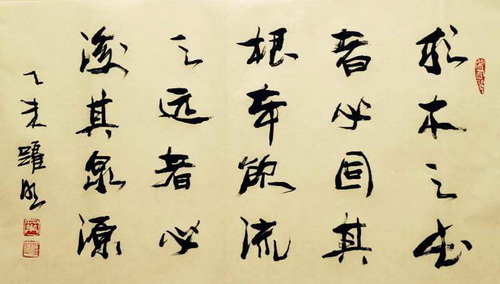 求木之长
者必固其
根本欲流
之远者必
浚其泉源
乙未